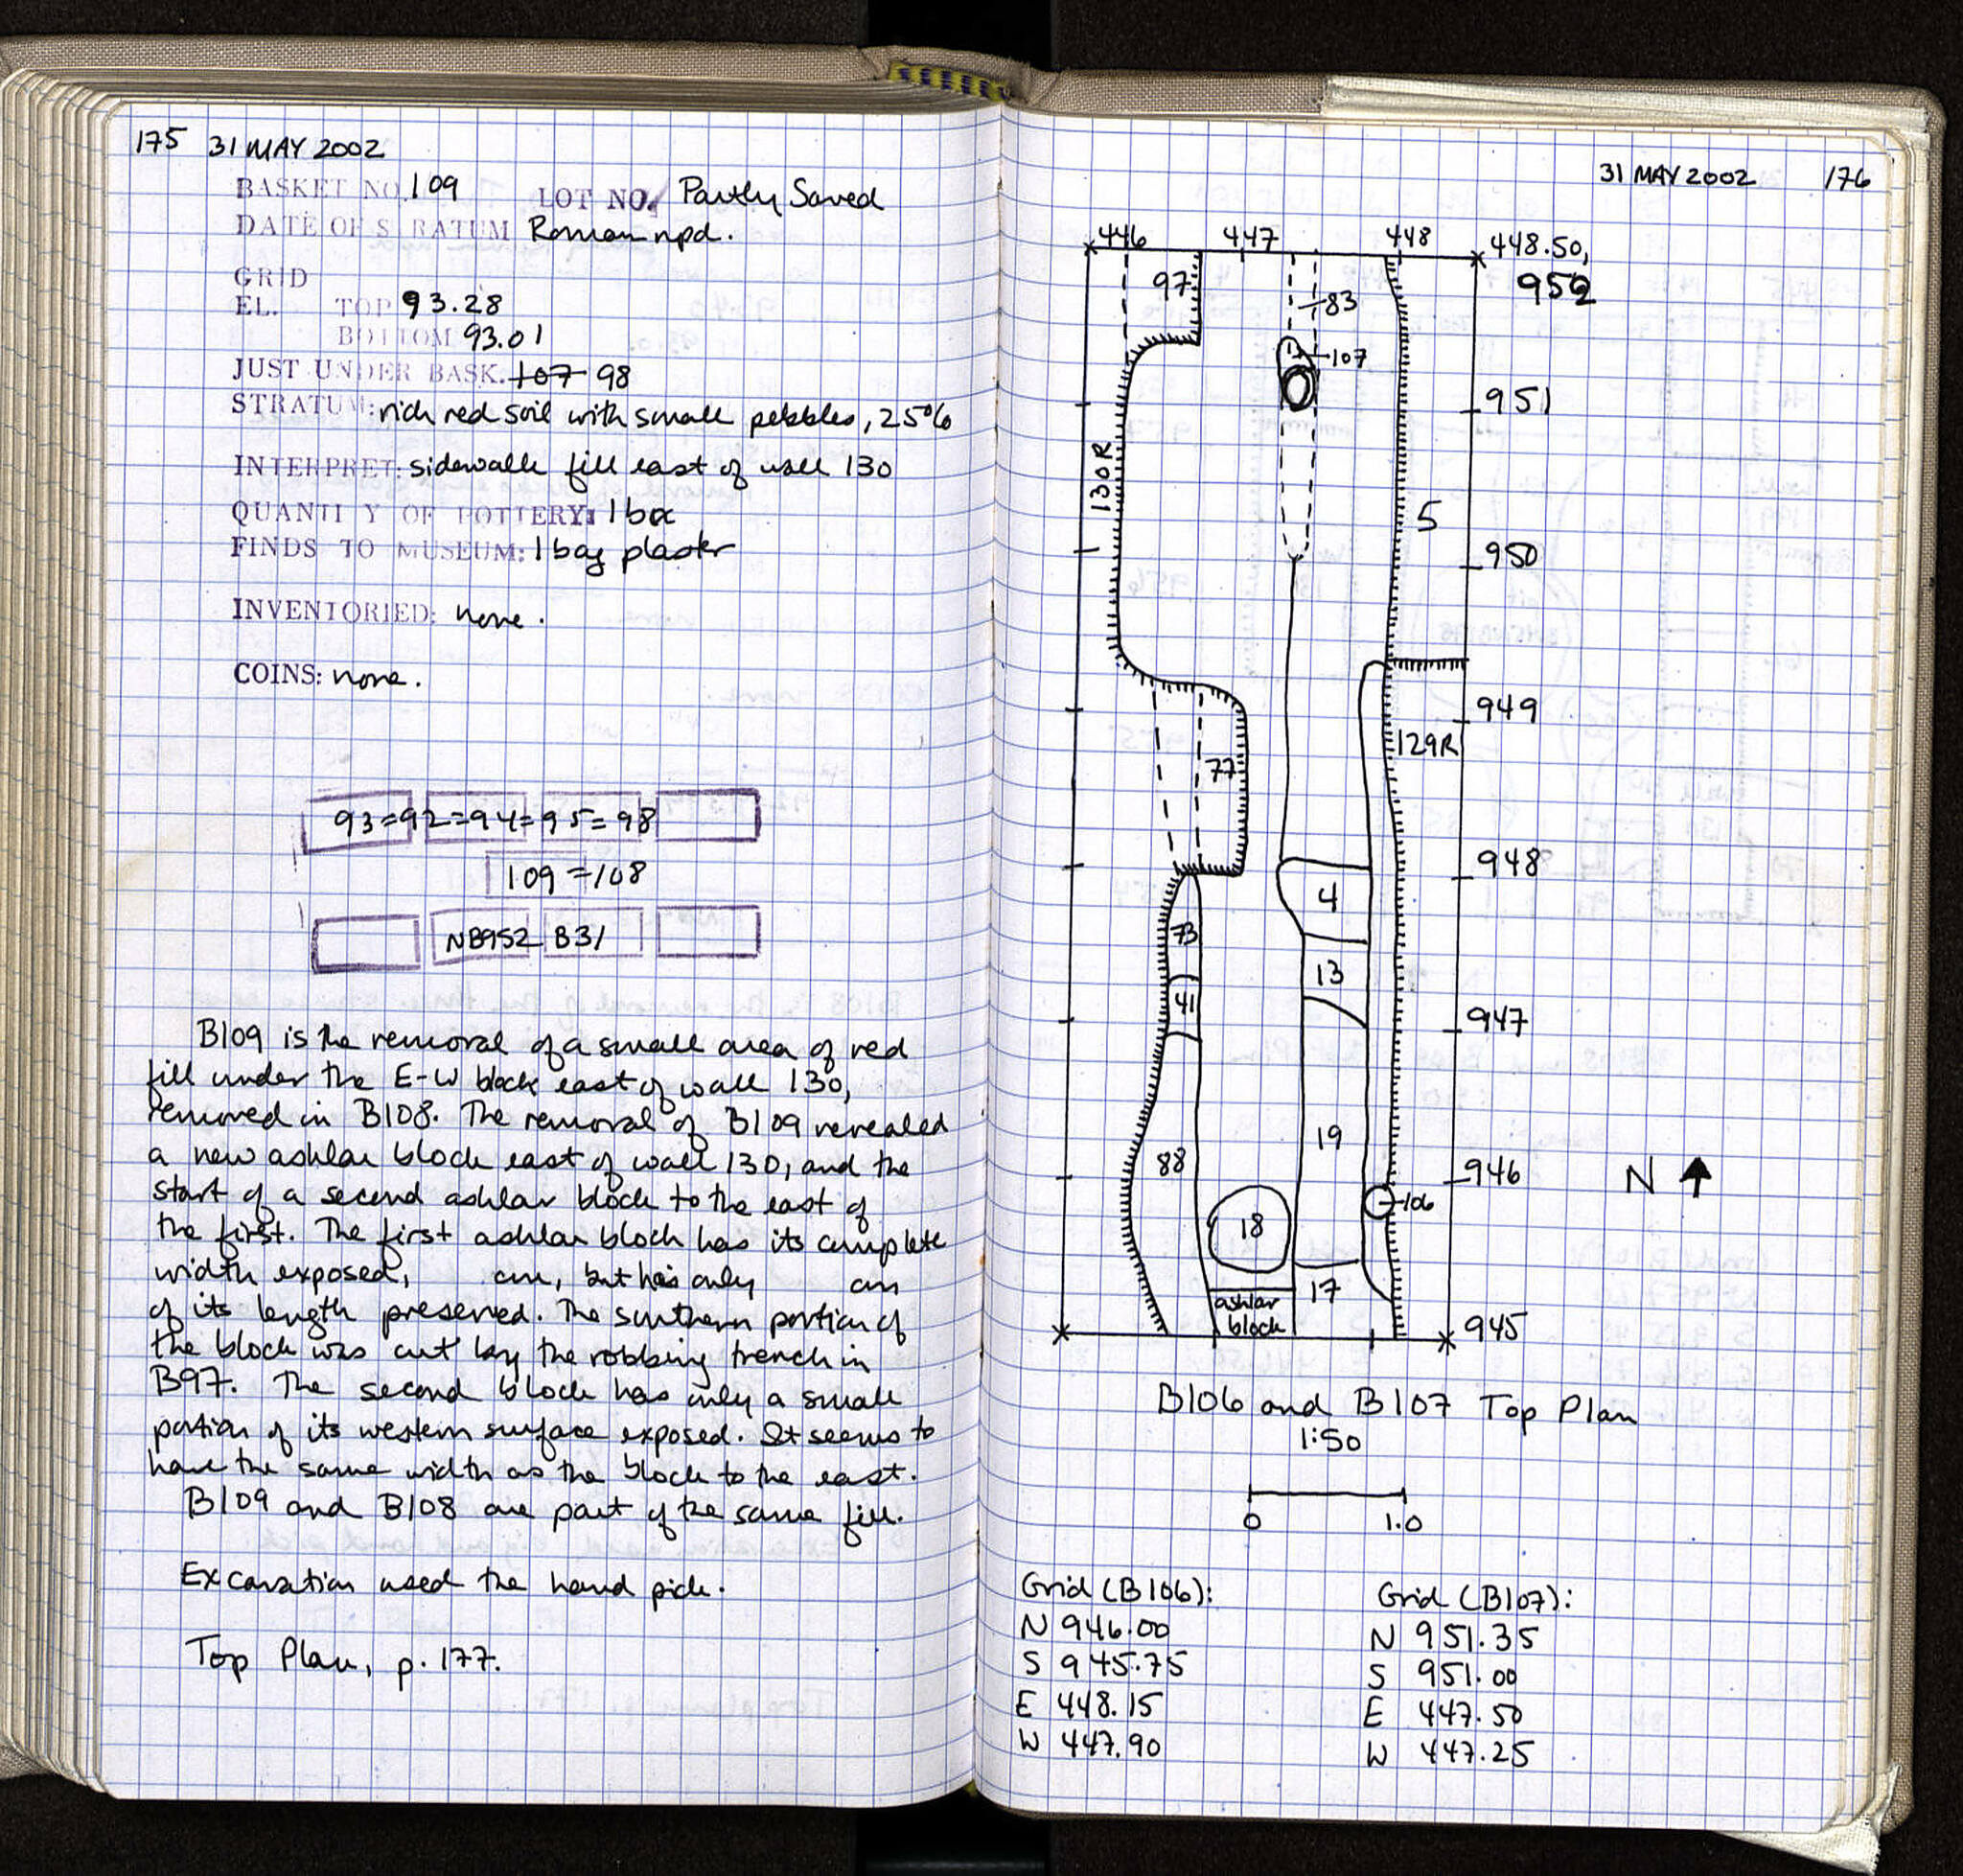 175 31 MAY 2002
BASKET NO. 109 LOT NO. Partly Saved
DATE OF STRATUM Roman npd.
GRID
EL. TOP 93.28
BOTTOM 93.01
JUST UNDER BASK. 107 98
STRATUM: rich red soil with small pebbles, 25%
INTERPRET: sidewalk fill east of wall 130
QUANTITY OF POTTERY: 1 box
FINDS TO MUSEUM: 1 bag plaster
INVENTORIED: none.
COINS: none.
93=92=94=95=98
109=108
NB952 B31
B109 is the removal of a small area of red
fill under the E-W block east of wall 130,
removed in B108. The removal of B109 revealed
a new ashlar block east of wall 130, and the
start of a second ashlar block to the east of
the first. The first ashlar block has its complete
width exposed, cm, but has only cm
of its length preserved. The southern portion of
the block was cut by the robbing trench in
B97. The second block has only a small
portion of its western surface exposed. It seems to
have the same width as the block to the east.
B109 and B108 are part of the same fill.
Excavation used the hand pick.
Top Plan, p. 177.
31 MAY 2002 176
446 447 448 448.50,
952
97
83
107
951
130R
5
950
949
129R
77
948
4
73
13
41
947
19
88
946
N
106
18
17
ashlar
block
945
B106 and B107 Top Plan
1:50
0 1.0
Grid (B106):
N 946.00
S 945.75
E 448.15
W 447.90
Grid (B107):
N 951.35
S 951.00
E 447.50
W 447.25